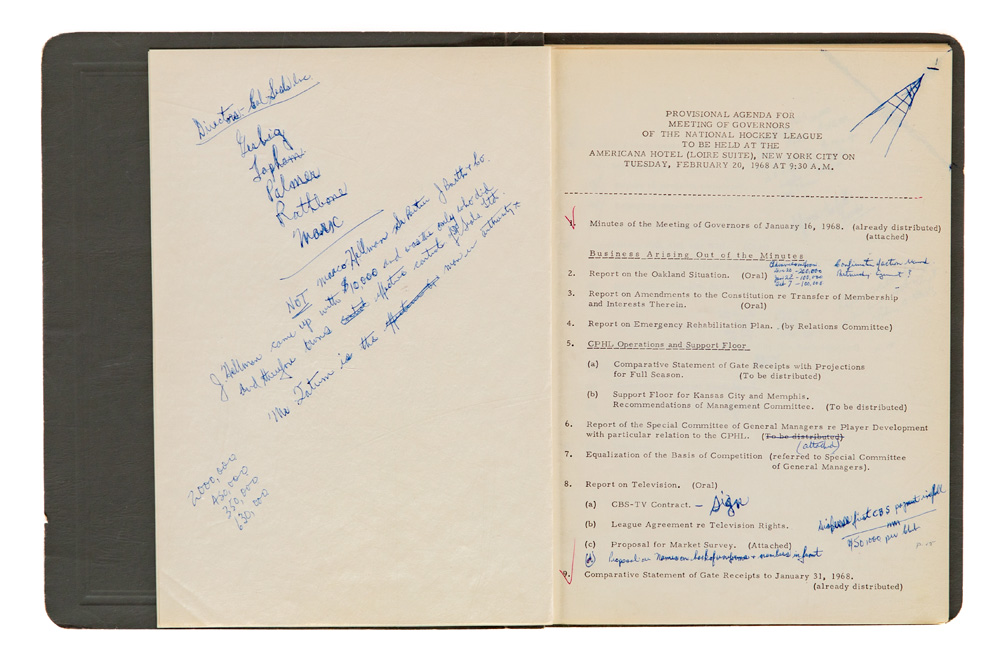 Directors
Gerbig
Lapham
Palmer
Rathbone
Marx
NOT
J Hellman came up with $10,000 and was the only who did
and therefore owns control effective control
Mr Tatum is the man in authority
2000,000
450,000
350,000
630,000
PROVISIONAL AGENDA FOR
MEETING OF GOVERNORS
OF THE NATIONAL HOCKEY LEAGUE
TO BE HELD AT THE
AMERICANA HOTEL (LOIRE SUITE), NEW YORK CITY ON
TUESDAY, FEBRUARY 20, 1968 AT 9:30 A.M.
Minutes of the Meeting of Governors of January 16, 1968. (already distributed)
(attached)
Business Arising Out of the Minutes
2. Report on the Oakland Situation. (Oral)
3. Report on Amendments to the Constitution re Transfer of Membership
and Interests Therein. (Oral)
4. Report on Emergency Rehabilitation Plan. . (by Relations Committee)
5. CPHL Operations and Support Floor
(a) Comparative Statement of Gate Receipts with Projections
for Full Season. (To be distributed)
(b) Support Floor for Kansas City and Memphis.
Recommendations of Management Committee. (To be distributed)
6. Report of the Special Committee of General Managers re Player Development
with particular relation to the CPHL. (To be distributed)
(attached)
7. Equalization of the Basis of Competition (referred to Special Committee
of General Managers).
8. Report on Television. (Oral)
(a) CBS-TV Contract. - Sign
(b) League Agreement re Television Rights.
first CBS payment in full
$50,000 per club
P-15
(c) Proposal for Market Survey. (Attached)
(d) Proposal on names on back of uniforms + numbers in front
9. Comparative Statement of Gate Receipts to January 31, 1968.
(already distributed)